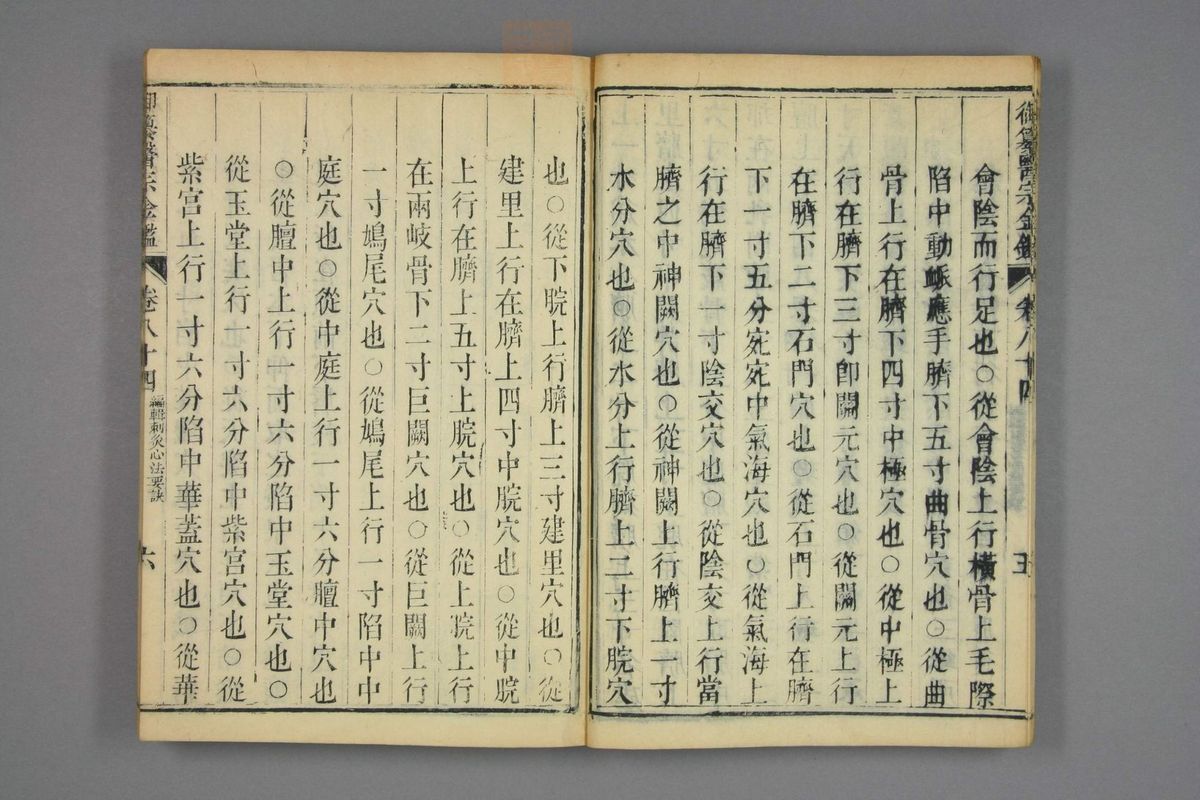 御纂醫宗金鑑
卷八十四
五
會陰而行足也○從會陰上行橫骨上毛際
陷中動脈應手臍下五寸曲骨穴也○從曲
骨上行在臍下四寸中極穴也○從中極上
行在臍下三寸卽關元穴也○從關元上行
在臍下二寸石門穴也○從石門上行在臍
下一寸五分宛宛中氣海穴也○從氣海上
行在臍下一寸陰交穴也○從陰交上行當
臍之中神闕穴也○從神闕上行臍上一寸
水分穴也○從水分上行臍上二寸下脘穴
也○從下脘上行臍上三寸建里穴也○從
建里上行在臍上四寸中脘穴也○從中脘
上行在臍上五寸上脘穴也○從上脘上行
在兩岐骨下二寸巨闕穴也○從巨闕上行
一寸鳩尾穴也○從鳩尾上行一寸陷中中
庭穴也○從中庭上行一寸六分膻中穴也
○從膻中上行一寸六分陷中玉堂穴也○
從玉堂上行一寸六分陷中紫宮穴也○從
紫宮上行一寸六分陷中華蓋穴也○從華
御纂醫宗金鑑
卷八十四
編輯刺灸心法要訣
六